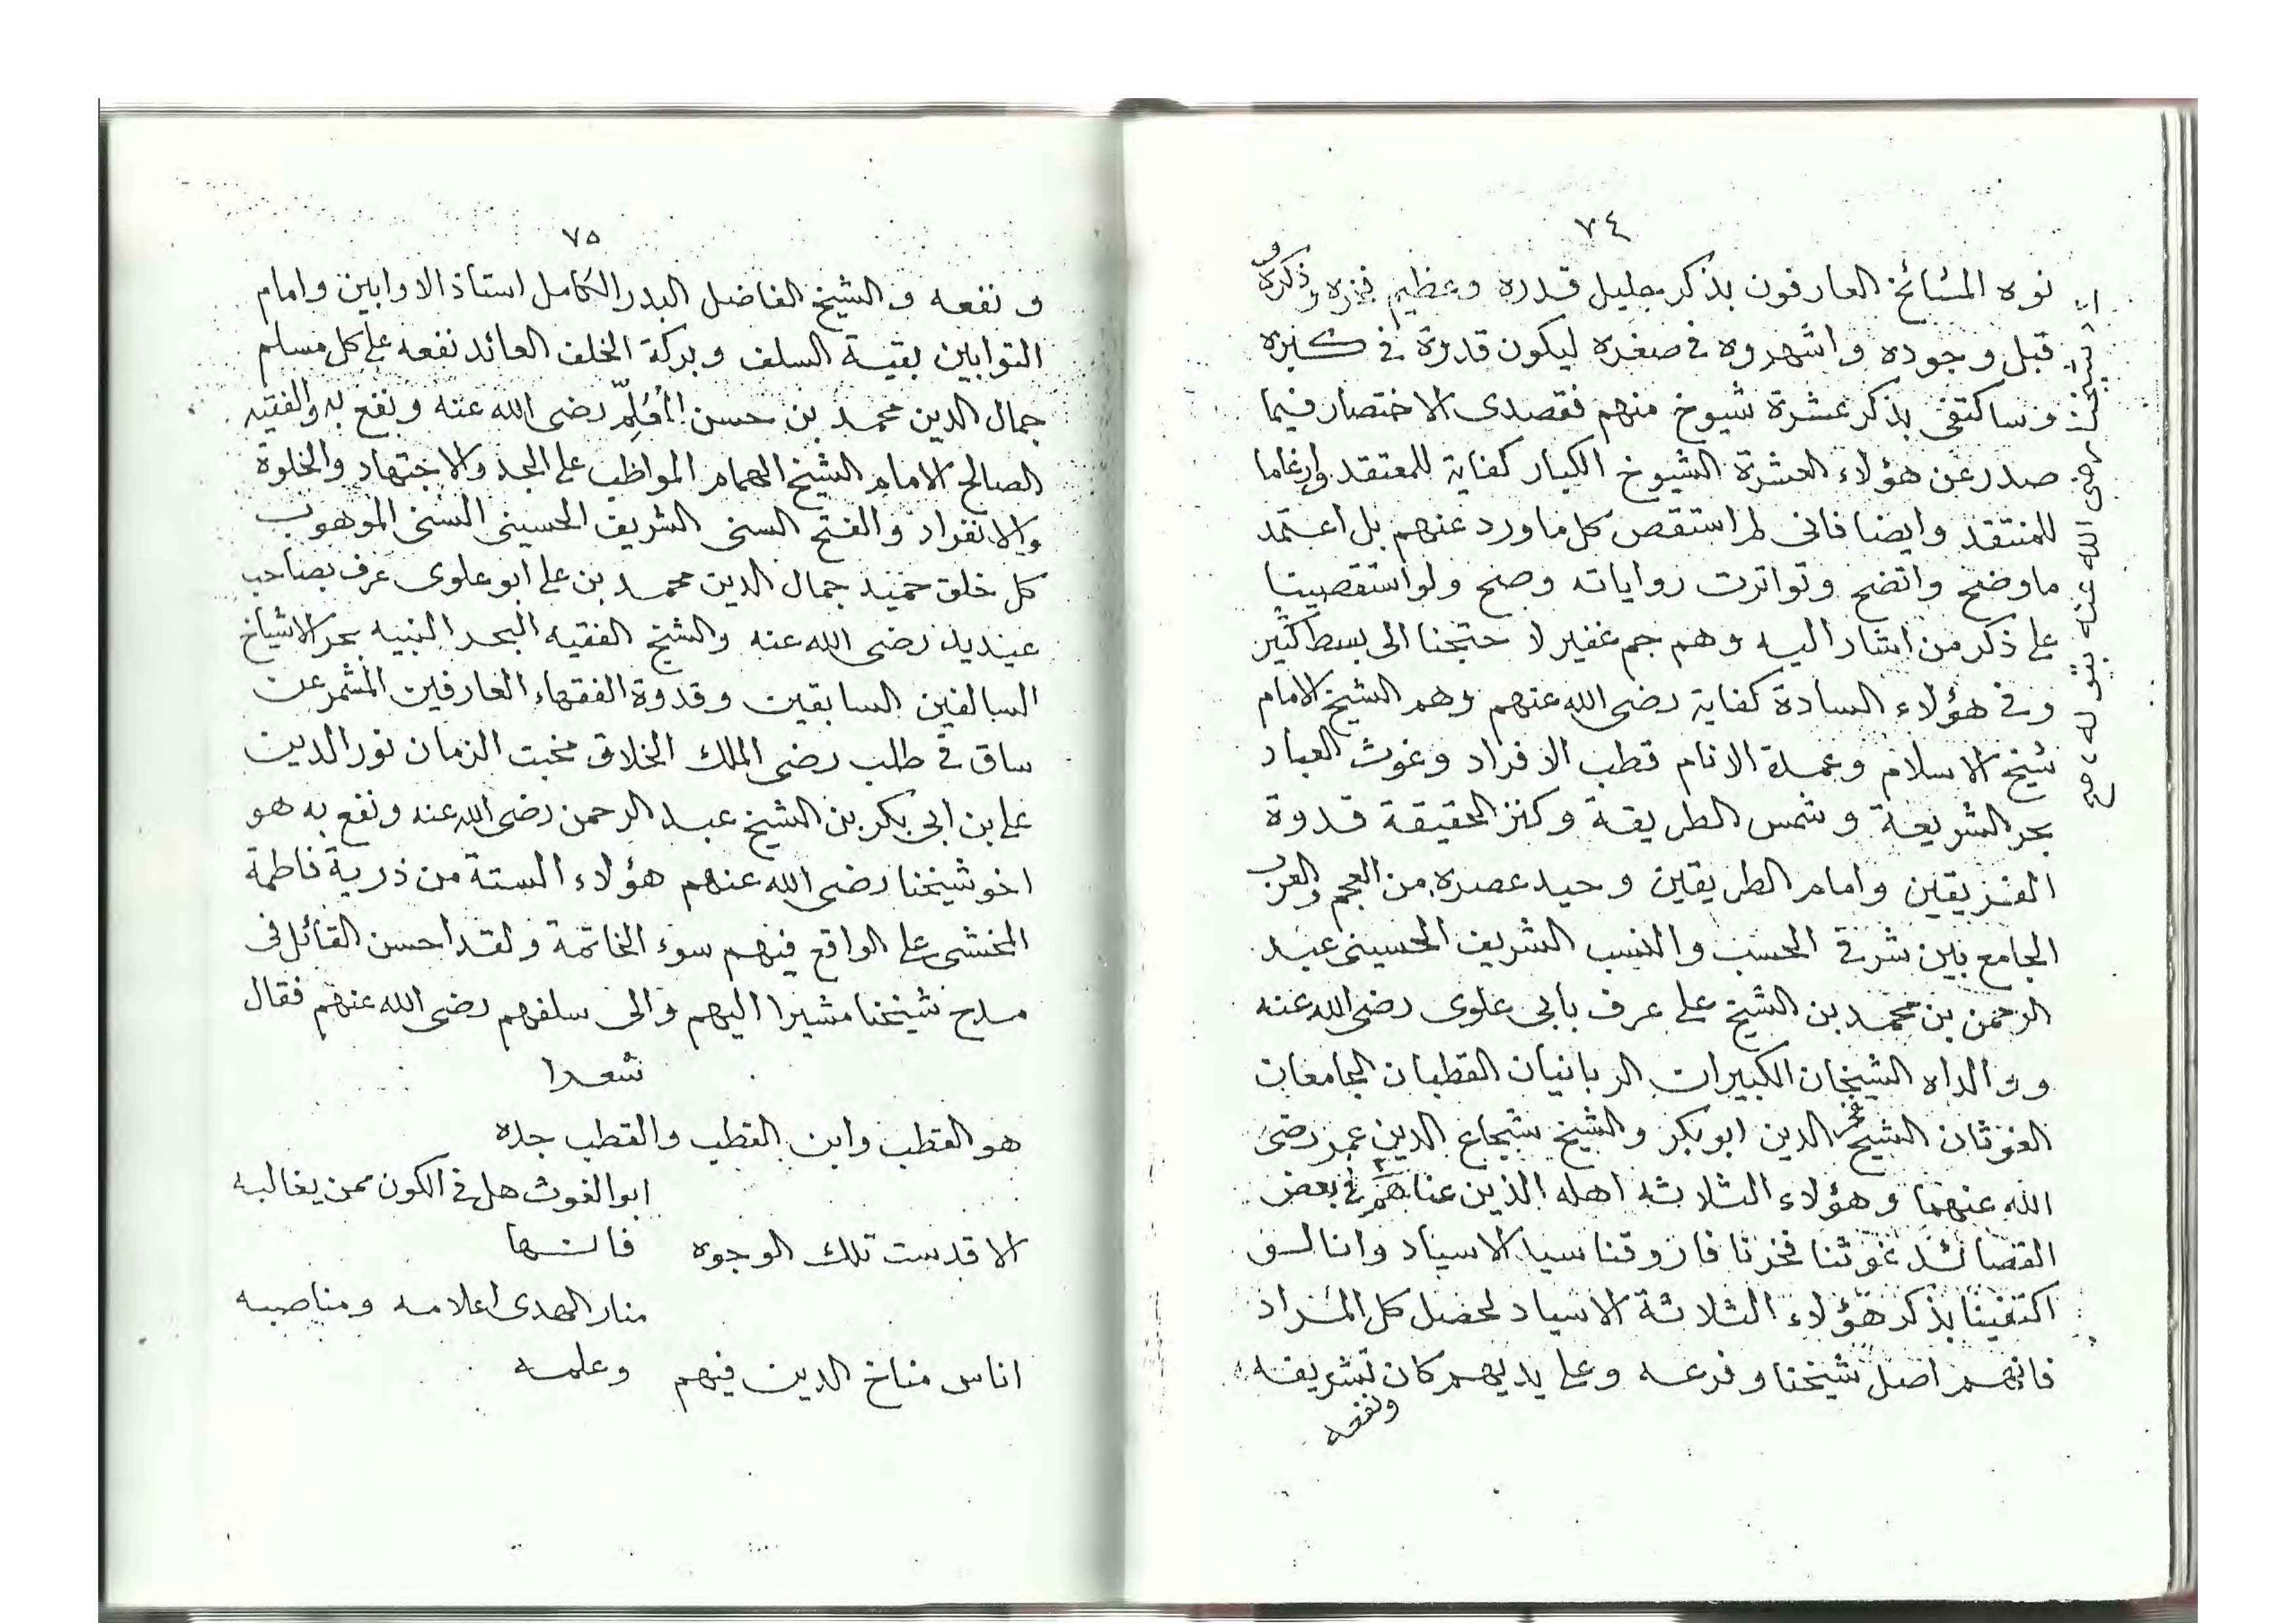 ٧٤
نوه المشائخ العارفون بذكر جليل قدره وعظيم فخره وذكروه
قبل وجوده واشهروه في صغره ليكون قدرة في كبره
وساكتفي بذكر عشرة شيوخ منهم فقصدى الاختصار فيما
صدر عن هؤلاء العشرة الشيوخ الكبار كفاية للمعتقد وارغاما
للمنتقد وايضا فانى لم استقص كل ما ورد عنهم بل اعتمد
ما وضح واتضح وتواترت رواياته وصح ولو استقصينا
على ذكر من اشار اليه وهم جم غفير لاحتجنا الى بسط كثير
وفي هؤلاء السادة كفاية رضى الله عنهم وهم الشيخ الامام
شيخ الاسلام وعمدة الانام قطب الافراد وغوث العباد
بحر الشريعة وشمس الطريقة وكنز الحقيقة قدوة
الفريقين وامام الطريقين وحيد عصره من العجم والعرب
الجامع بين شرفي الحسب والنسب الشريف الحسينى عبد
الرحمن بن محمد بن الشيخ على عرف بابى علوى رضى الله عنه
وولداه الشيخان الكبيران الربانيان القطبان الجامعان
الغوثان الشيخ فخر الدين ابو بكر والشيخ شجاع الدين عمر رضى
الله عنهما وهؤلاء الثلاثه اهله الذين عناهم في بعض
القصائد غوثنا فخرنا فاروقنا سيد الاسياد وانا لو
اكتفينا بذكر هؤلاء الثلاثة الاسياد لحصل كل المراد
فانهم اصل شيخنا وفرعه وعلى يديهم كان تشريفه
ونفعه
شيخنا رضى الله عنه بقوله
٧٥
ونفعه والشيخ الفاضل البدر الكامل استاذ الاوابين وامام
التوابين بقية السلف وبركة الخلف العائد نفعه على كل مسلم
جمال الدين محمد بن حسن المعلم رضى الله عنه ونفع به والفقيه
الصالح الامام الشيخ الهمام المواظب على الجد والاجتهاد والخلوة
والانفراد والفتح السنى الشريف الحسينى السنى الموهوب
كل خلق حميد جمال الدين محمد بن على ابو علوى عرف بصاحب
عيديد رضى الله عنه والشيخ الفقيه البحر النبيه بحر الاشياخ
السالفين السابقين وقدوة الفقهاء العارفين المشمر عن
ساق في طلب رضى الملك الخلاق مخبت الزمان نور الدين
على بن ابى بكر بن الشيخ عبد الرحمن رضى الله عنه ونفع به هو
اخو شيخنا رضى الله عنهم هؤلاء الستة من ذرية فاطمة
المخشى على الواقع فيهم سوء الخاتمة ولقد احسن القائل فى
مدح شيخنا مشيرا اليهم والى سلفهم رضى الله عنهم فقال
شعرا
هو القطب وابن القطب والقطب جده
ابو الغوث هل في الكون ممن يغالبه
الا قدست تلك الوجوه فانها
منار الهدى اعلامه ومناصبه
اناس مناخ الدين فيهم وعلمه